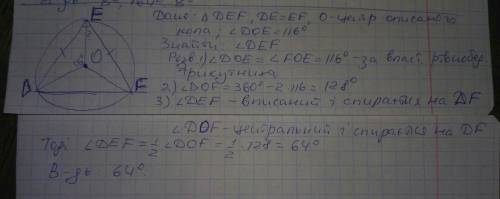 E
O
D
F
Дано: △DEF, DE=EF, O-центр описаного
кола, ∠DOE=116°
Знайти ∠DEF
Розв. 1) ∠DOE=∠FOE=116° - за власт рівнобер.
Трикутника
2) ∠DOF=360°-2·116=128°
3) ∠DEF - вписаний і спирається на DF
∠DOF - центральний і спирається на DF
Тоді ∠DEF=1/2 ∠DOF=1/2·128=64°
В-дь: 64°.